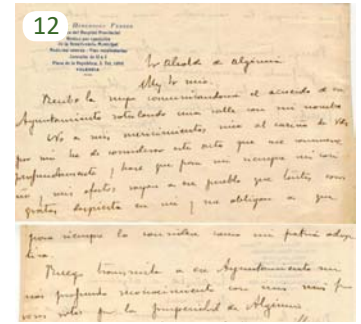 12
Hernández
del Hospital Provincial
Médico por oposición
de la Beneficencia Municipal
Consulta de 10 a 2
Plaza de la República, 5. Tel.
VALENCIA
Sr Alcalde de Algimia
Muy Sr mio:
Recibo la suya comunicandome el acuerdo de ese
Ayuntamiento rotulando una calle con mi nombre
No a mis merecimientos, mas al cariño de Vds
por mi he de considerar este acto que me conmueve
profundamente, y hace que para mi siempre mi cari
ño y mis afectos, vayan a ese pueblo que tantas cosas
gratas despierta en mi, y me obligan a que
para siempre lo considere como mi patria adop
tiva.
Ruego transmita a ese Ayuntamiento mi
mas profundo reconocimiento con mis mas
votos por la prosperidad de Algimia